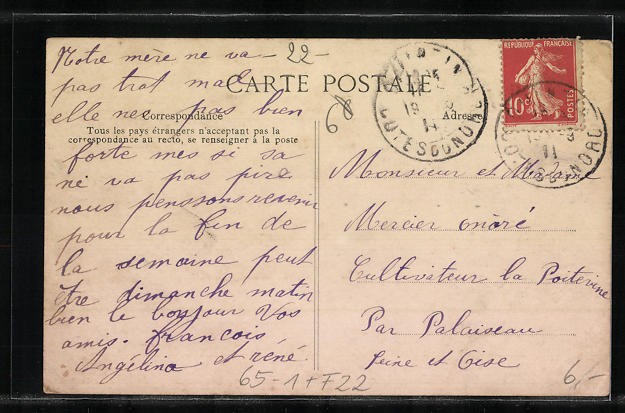 Notre mère ne va -22-
pas trot mal
CARTE POSTALE
elle nes pas bien
Correspondance
Adresse
Tous les pays étrangers n'acceptent pas la
correspondance au recto, se renseigner à la poste
forte mes si sa
ne va pas pire
nous penssons revenir
pour la fin de
la semaine peut
être dimanche matin
bien le bonjour Vos
amis. francois
Angélina et réné
REPUBLIQUE FRANÇAISE
10c
POSTES
COTES DU NORD
11
Monsieur et Madame
Mercier onoré
Cultivateur la Poitevine
Par Palaiseau
Seine et Oise
65-1+F22
6,-